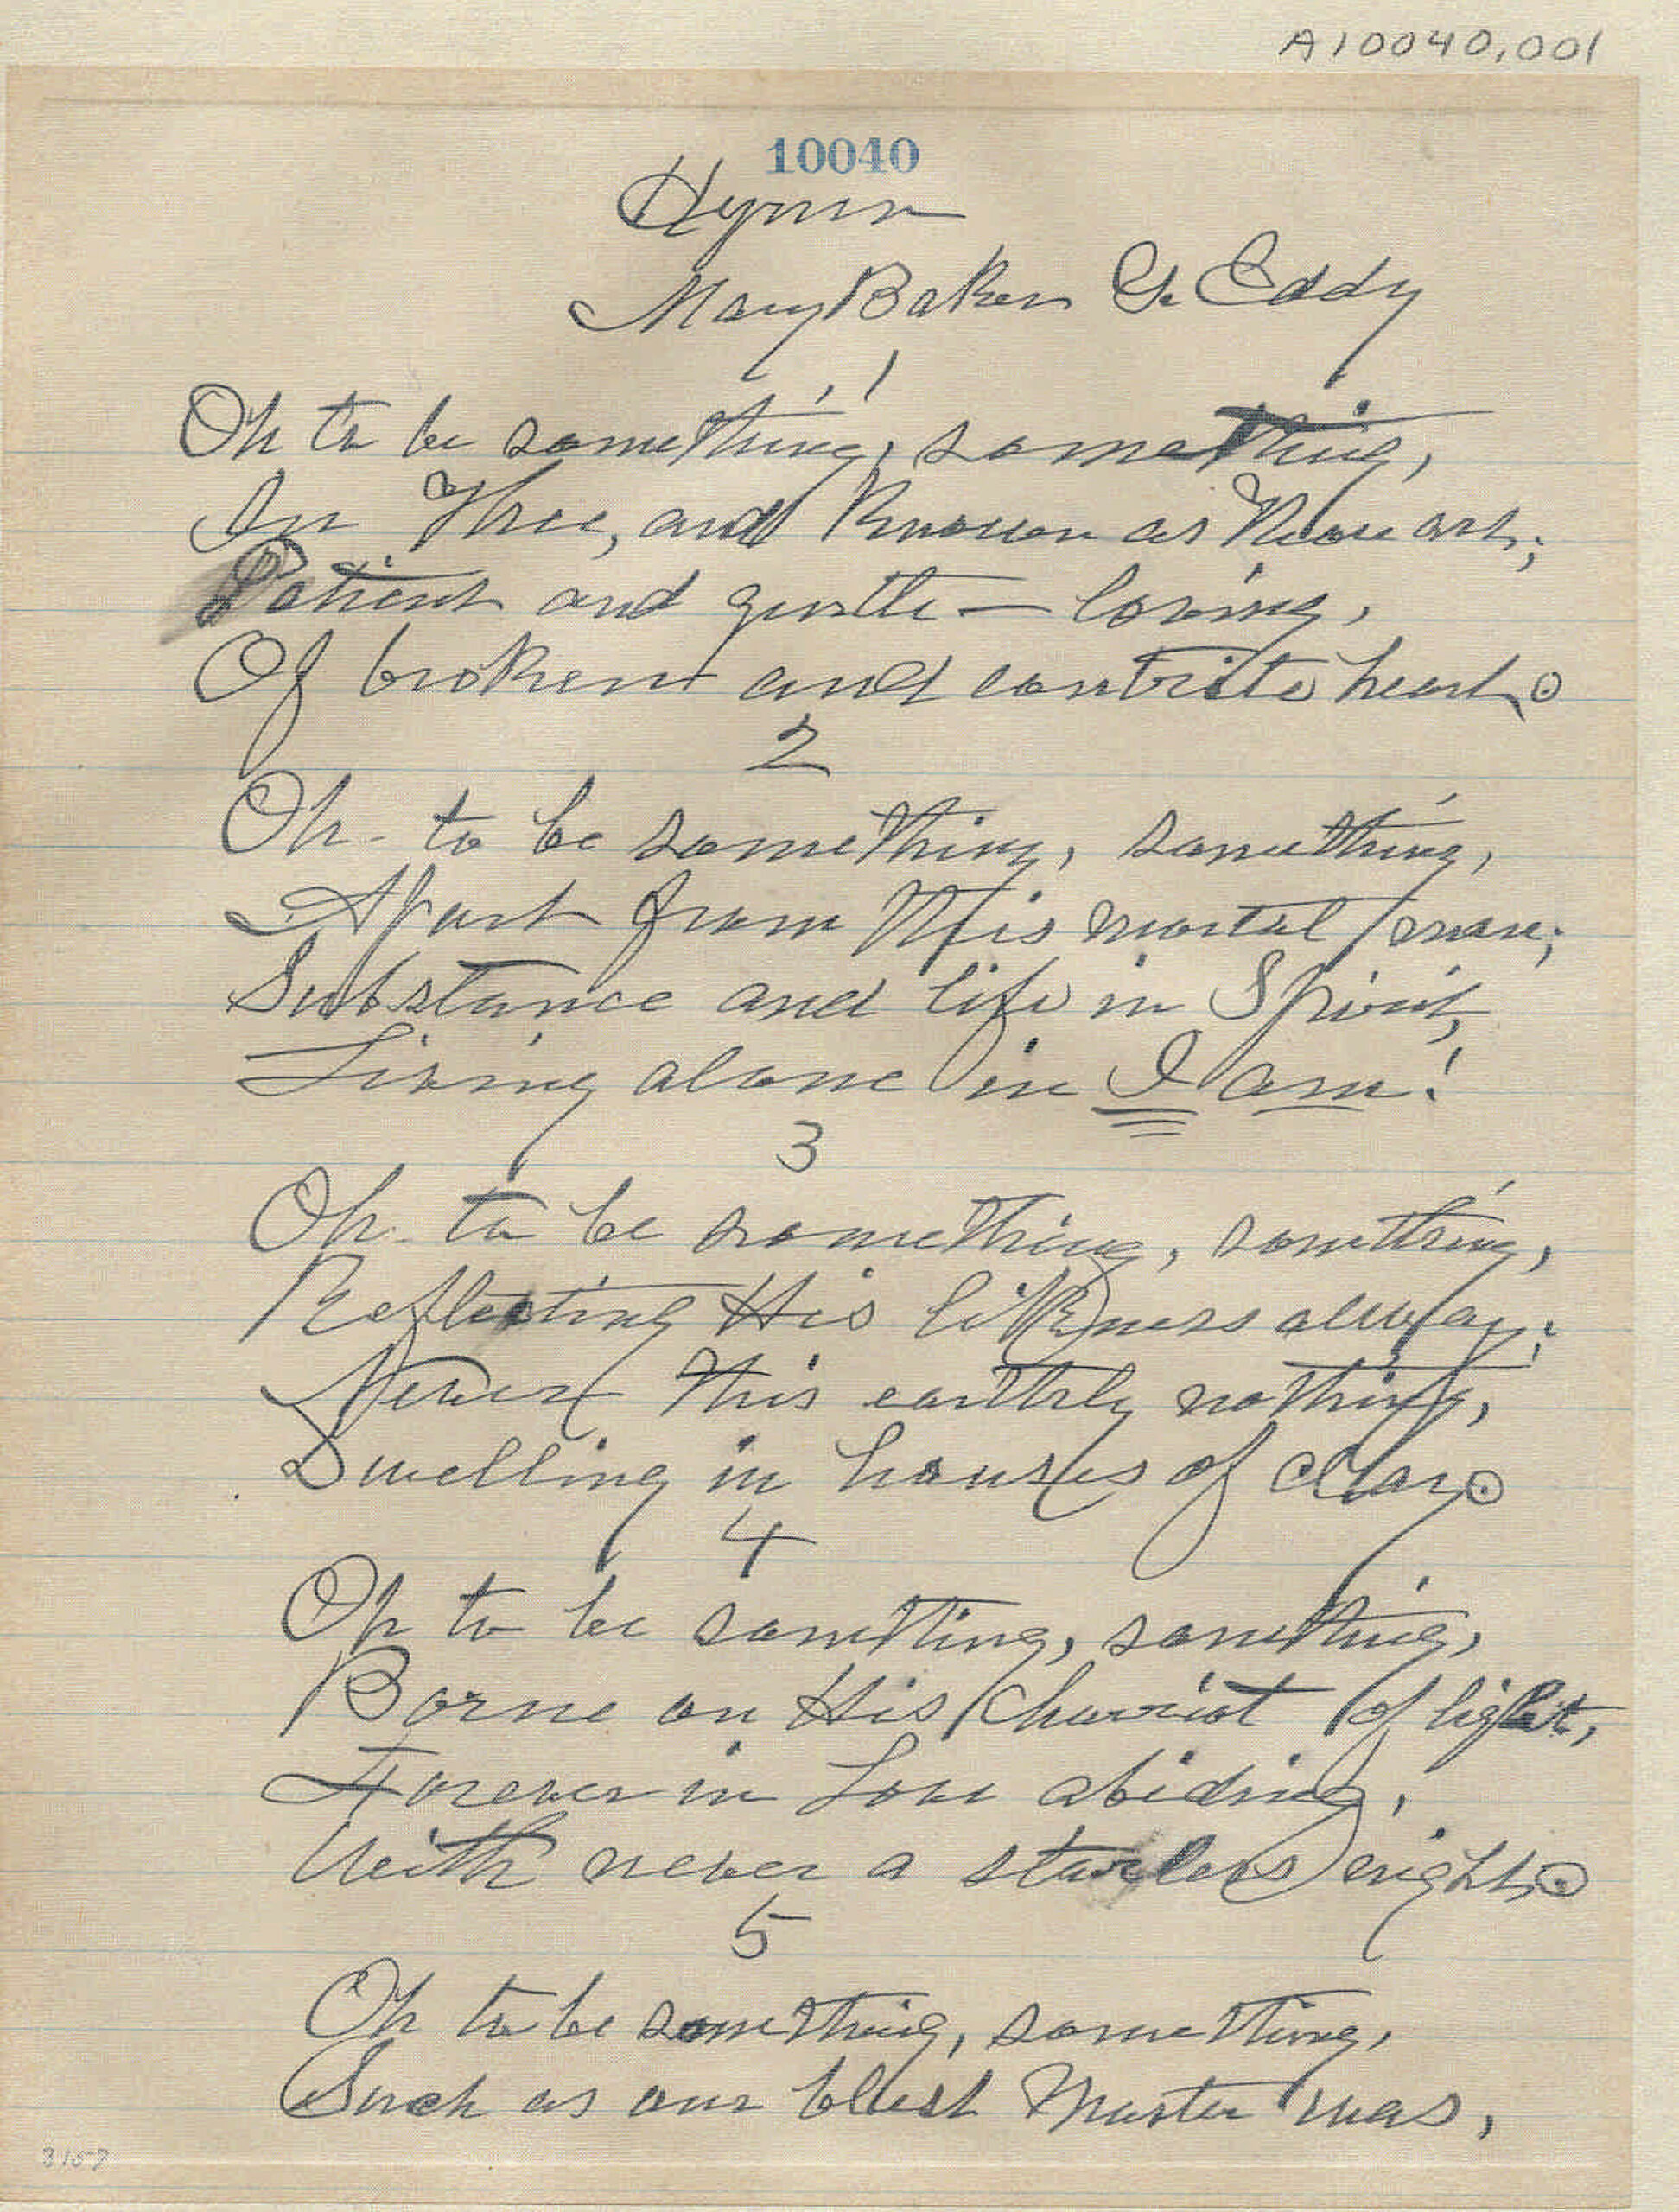 A10040.001
10040
Hymn
Mary Baker G. Eddy
1
Oh to be something, something,
In Thee, and known as Thou art;
Patient and gentle — loving,
Of broken and contrite heart.
2
Oh - to be something, something,
Apart from this mortal man;
Substance and life in Spirit,
Living alone in I am!
3
Oh - to be something, something,
Reflecting His likeness alway;
Never this earthly nothing,
Dwelling in houses of clay.
4
Oh to be something, something,
Borne on His chariot of light,
Forever in Love abiding,
With never a starless night.
5
Oh to be something, something,
Such as our blest Master was,
3157